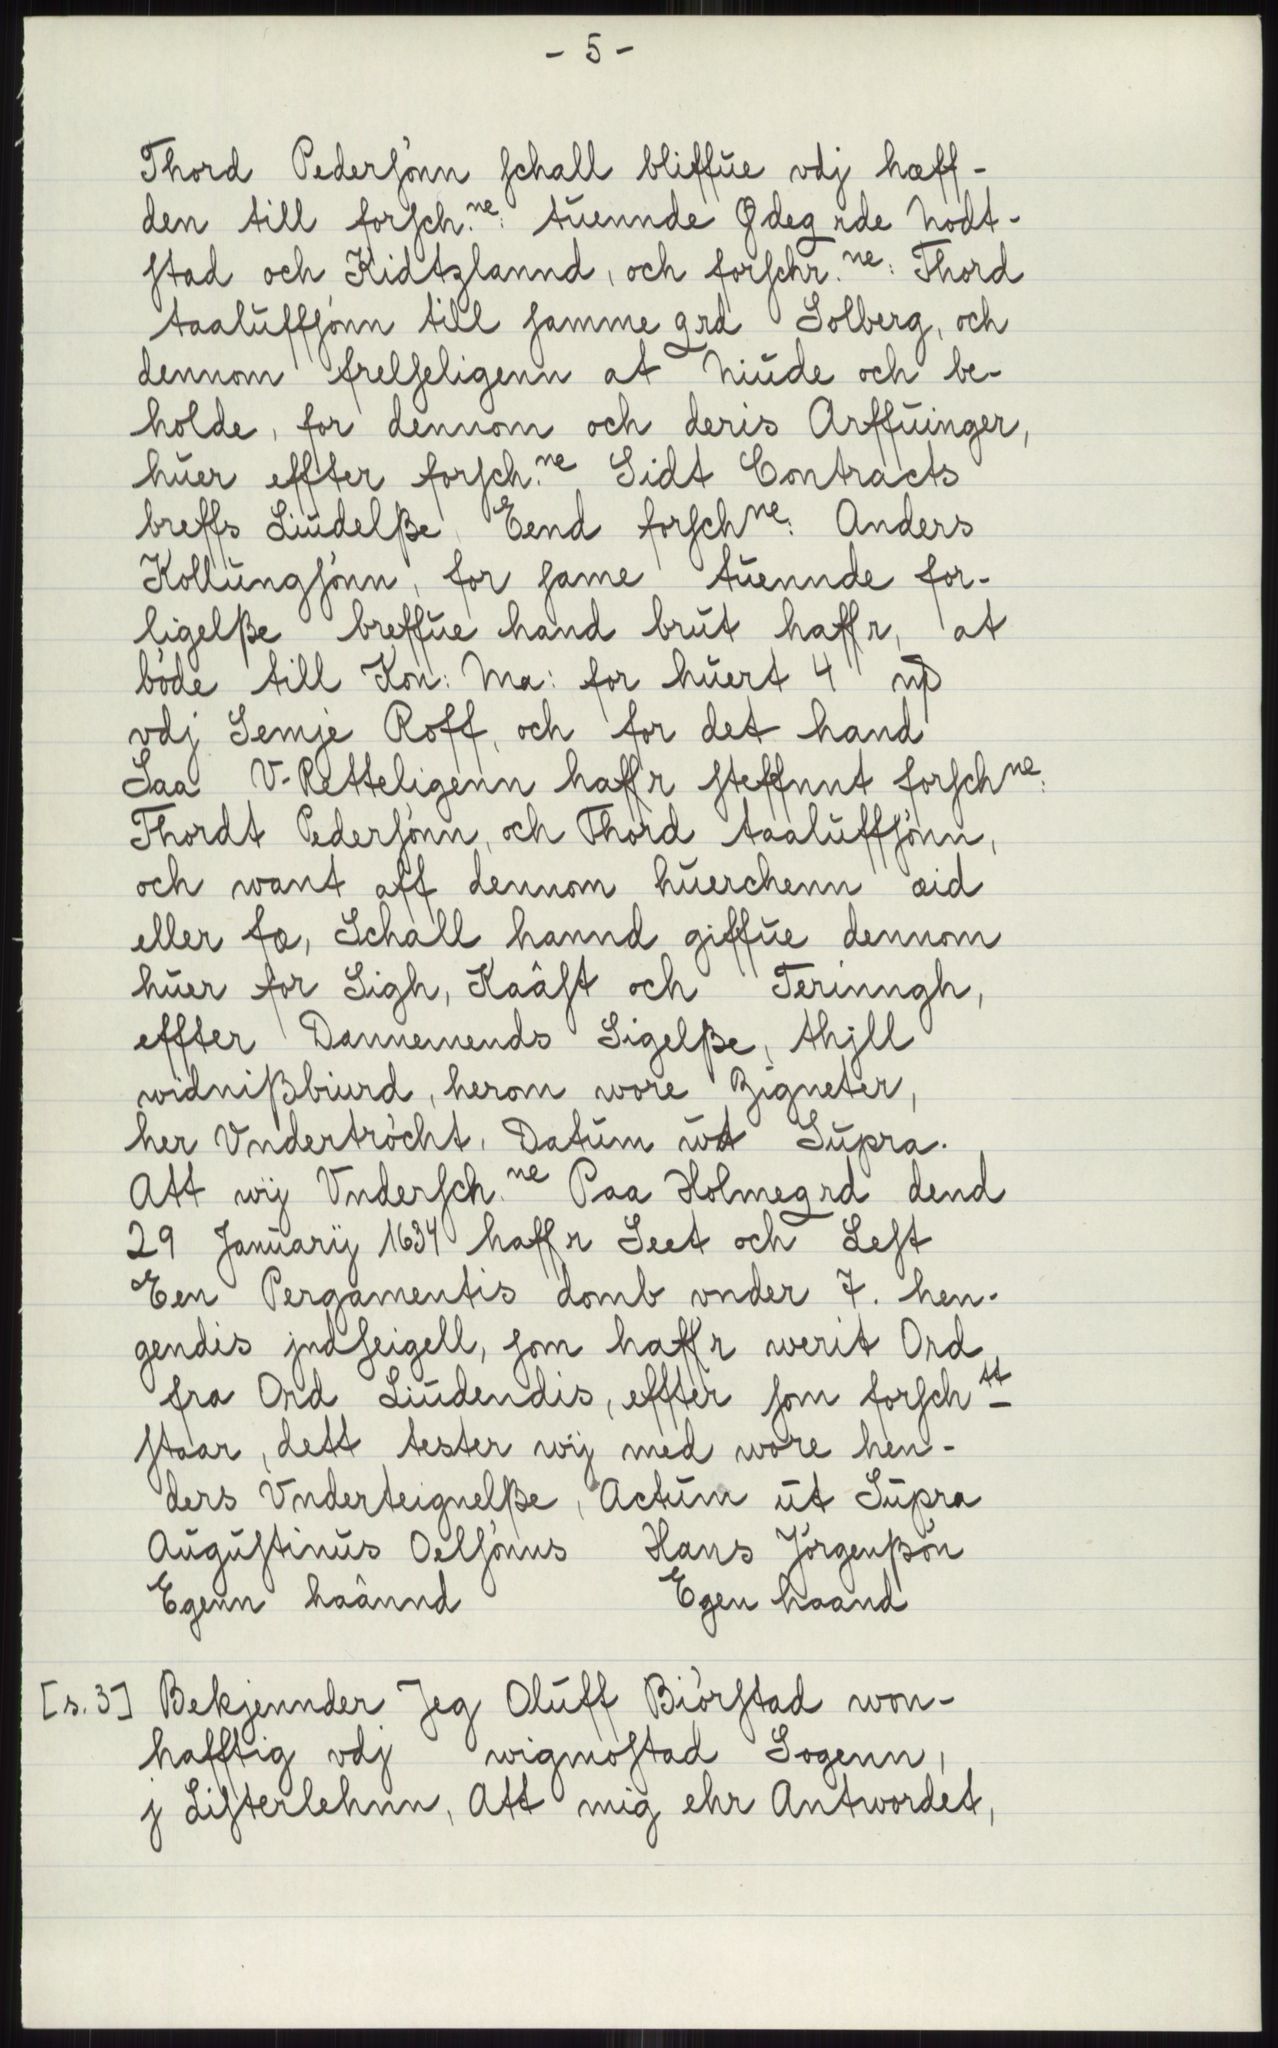 - 5 -
Thord Pedersönn schall bliffŭe vdj hæff-
den till forsch.ne: tŭennde Ødegrde Nodt-
stad och Kidtzlannd, och forschr.ne: Thord
taalŭffsönn till samme grd Solberg, och
dennom frelseligenn at Niŭde och be-
holde, for dennom och deris Arffŭinger,
hŭer effter forsch.ne Sidt Contracts
breffs Liŭdelße, Eend forschne: Anders
Kollŭngsönn, for same tŭennde for-
ligelße breffŭe hand brŭt haffr, at
böde till Kon: Ma: for hŭert 4 
vdj Semje Roff, och for det hand
Saa V-Retteligenn haffr steffnnt forschne:
Thordt Pedersönn, och Thord taalŭffsönn,
och want aff dennom hŭerchenn æid
eller fæ, Schall hannd giffŭe dennom
hŭer for Sigh, Kaâst och Terinngh,
effter Dannemends Sigelße, thjll
widnißbiurd, herom wore Zigneter,
her Vndertröcht. Datŭm ŭt Sŭpra.
Att wij Vndersch.ne Paa Holmegrd dend
29 Janŭarij 1634 haffr Seet och Lest
Een Pergamentis domb vnder 7. hen-
gendis jndseigell, som haffr werit Ord
fra Ord Liŭdendis, effter som forsch tt
staar, dett tester wij med wore hen-
ders Vnderteignelße, Actŭm ŭt Sŭpra
Aŭgŭstinŭs Oelsönns Hans Jörgenßön
Egenn haânnd Egen haand
[s. 3] Bekjennder Jeg Olŭff Biörstad won-
hafftig vdj wigmostad Sogenn,
j Listerlehnn, Att mig ehr Antwordet,